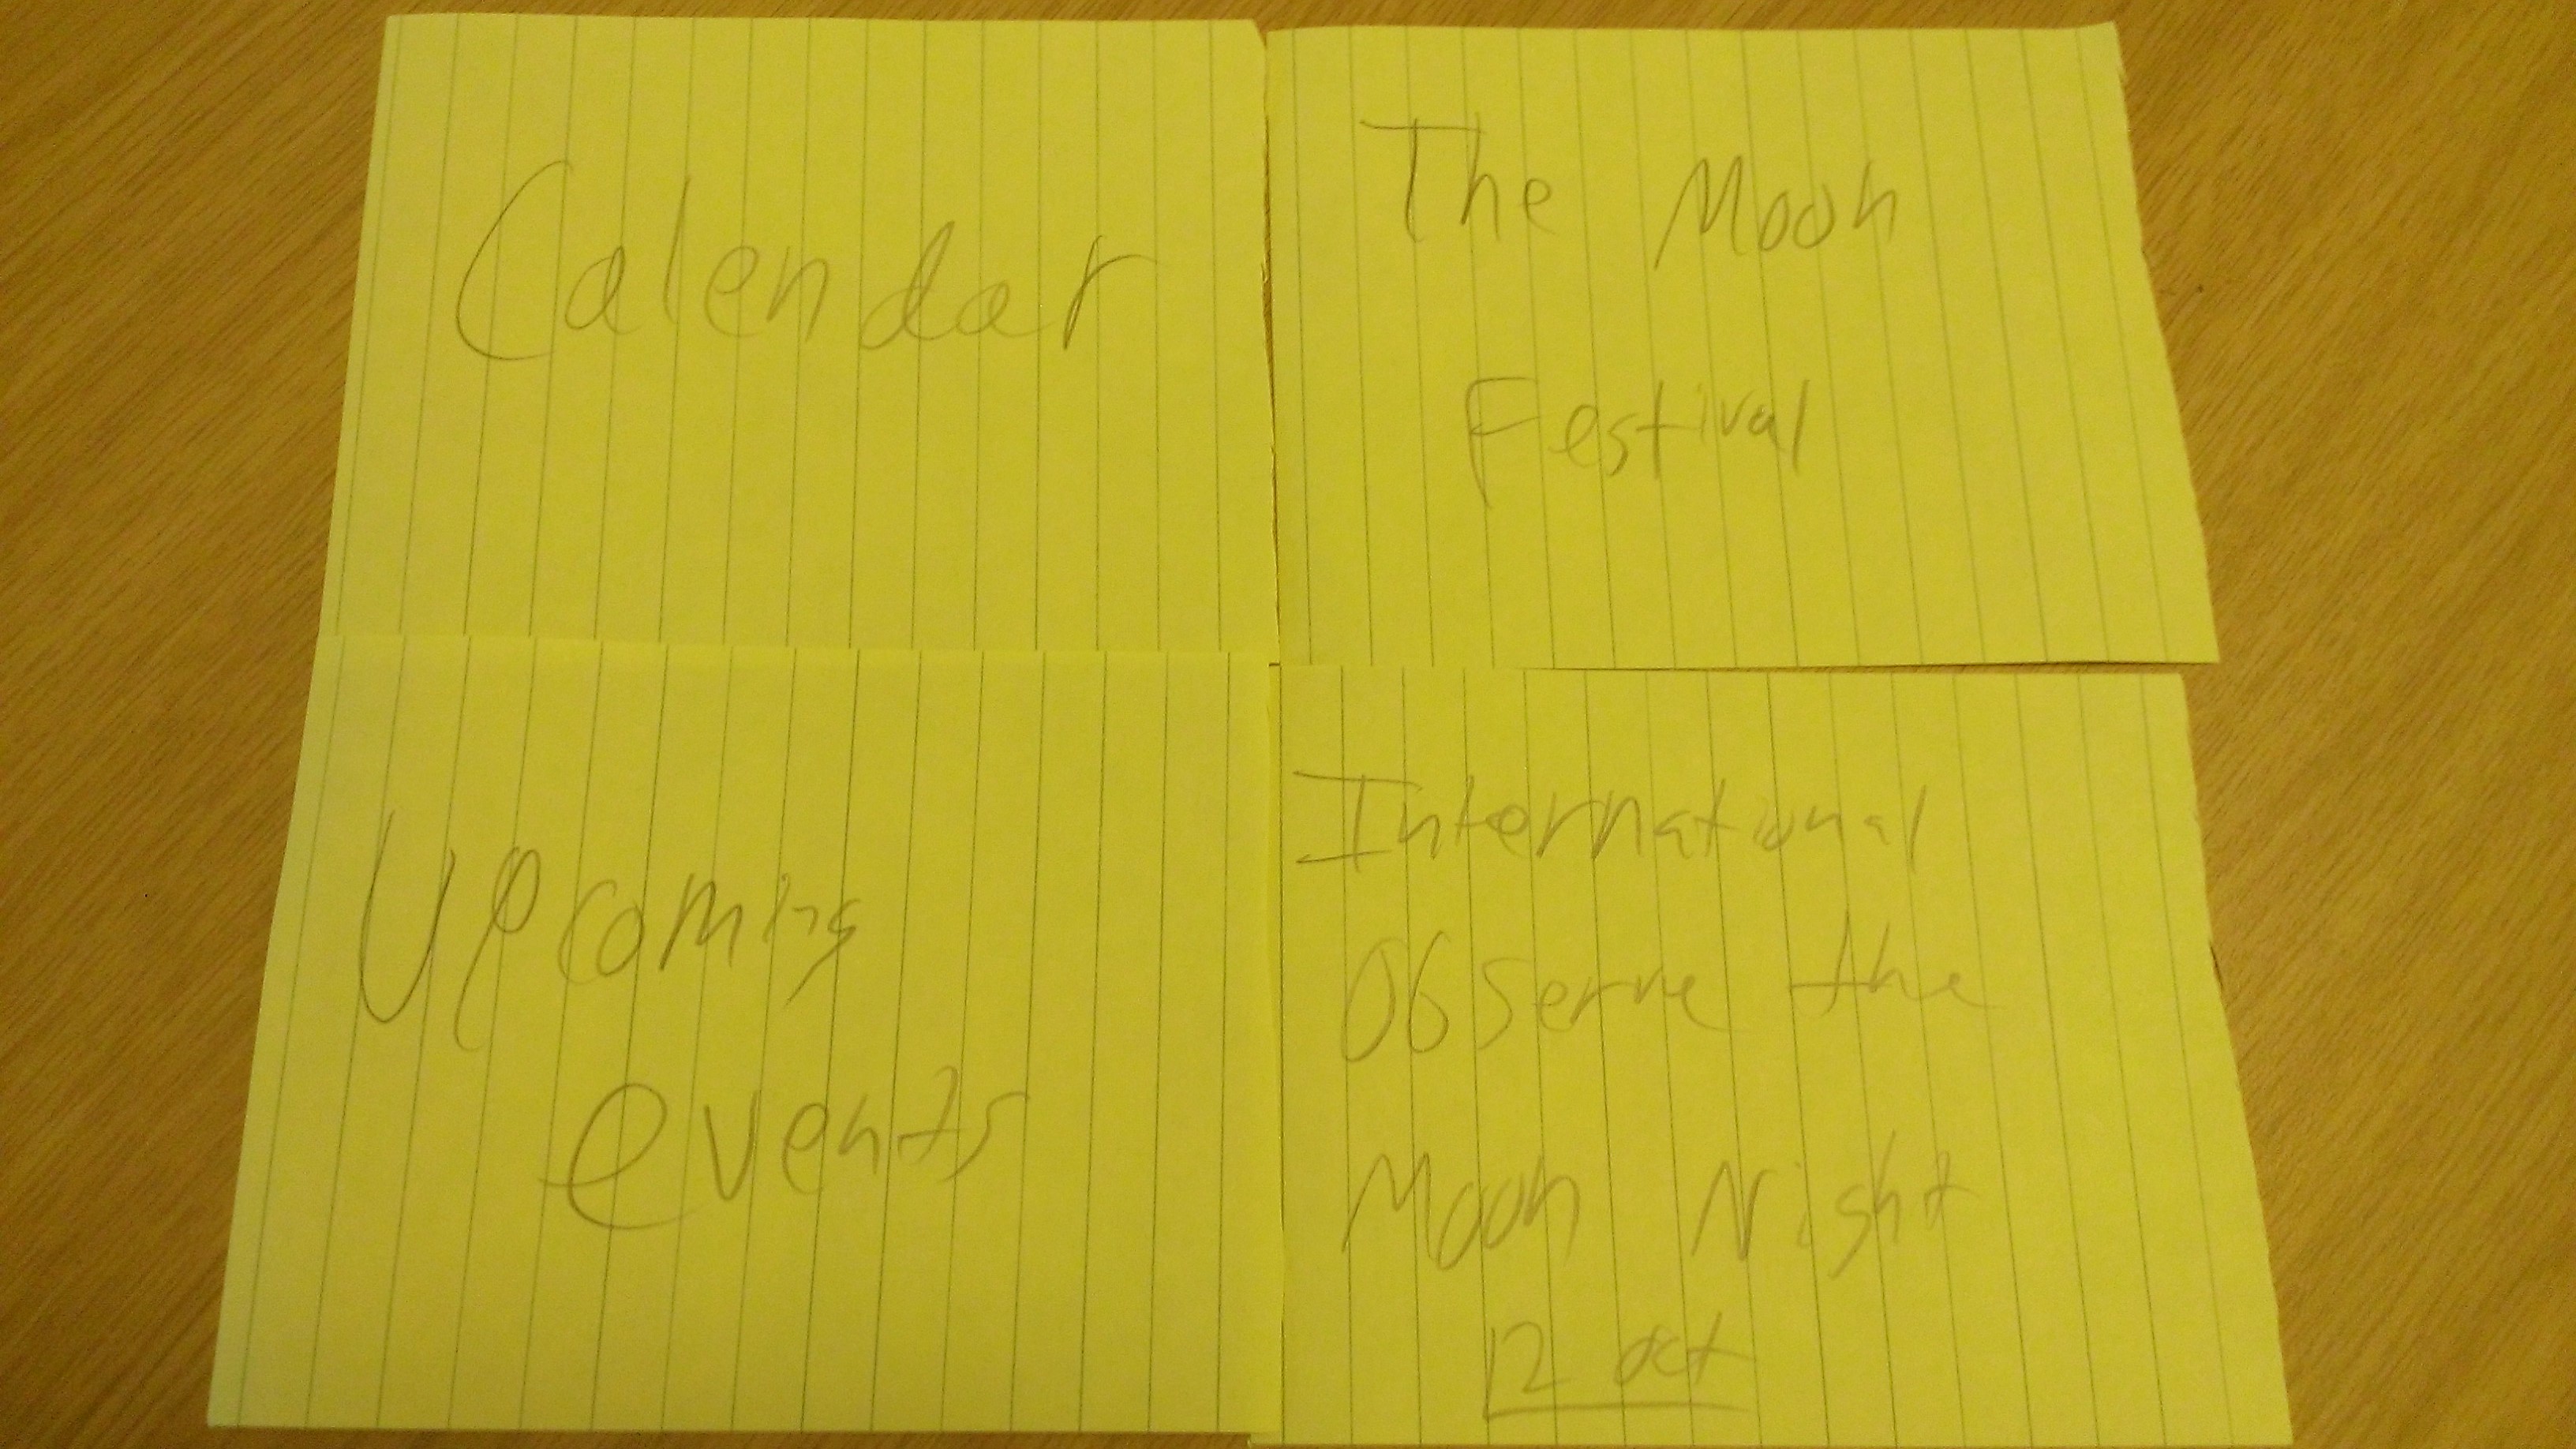 Calendar
The Moon
Festival
Upcoming
events
International
Observe the
Moon Night
12 oct